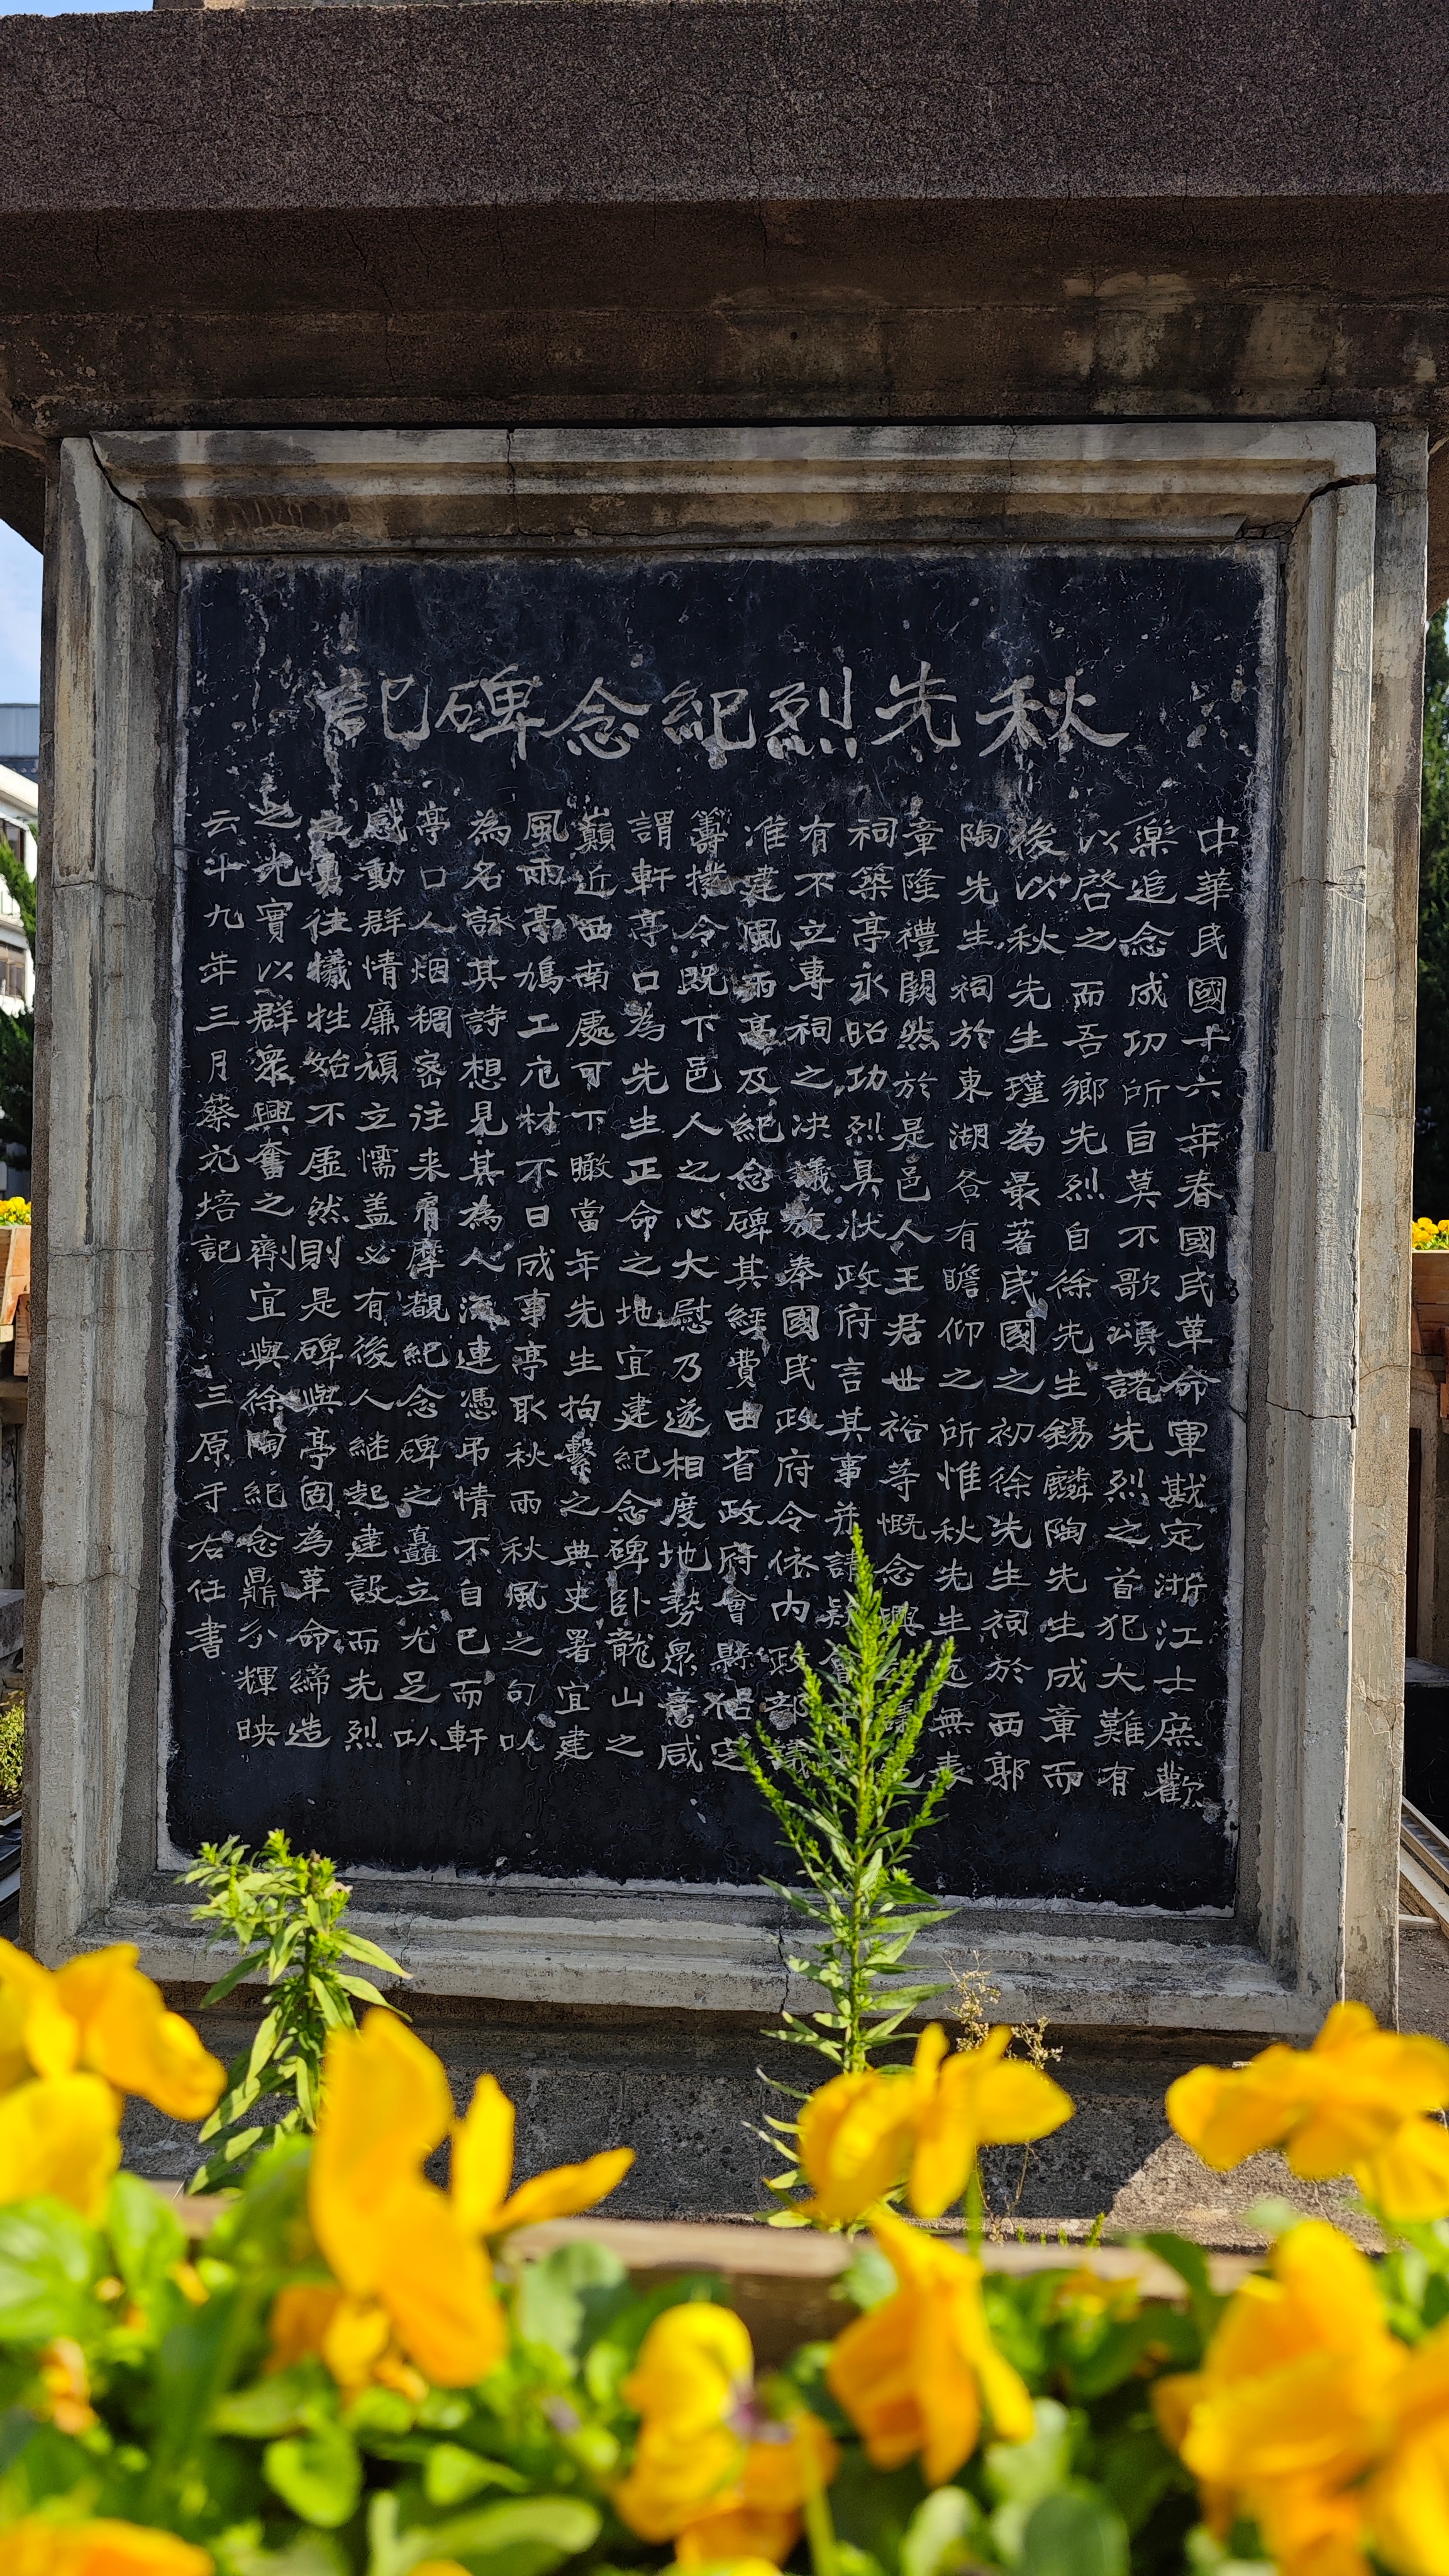 秋先烈紀念碑記
中華民國十六年春國民革命軍戡定浙江士庶歡
樂追念成功所自莫不歌頌諸先烈之首犯大難有
以啓之而吾鄉先烈自徐先生錫麟陶先生成章而
後以秋先生瑾為最著民國之初徐先生祠於西郭
陶先生祠於東湖各有瞻仰之所惟秋先生無表
章隆禮闕然於是邑人王君世裕等慨念興
祠築亭永昭功烈具狀政府言其事并請
有不立專祠之决議奉國民政府令依内政部議
准建風雨亭及紀念碑其經費由省政府會縣定
籌撥令既下邑人之心大慰乃遂相度地勢衆意咸
謂軒亭口為先生正命之地宜建紀念碑卧龍山之
巔近西南處可下瞰當年先生拘繫之典史署宜建
風雨亭鳩工庀材不日成事亭取秋雨秋風之句以
為名詠其詩想見其為人流連憑弔情不自已而軒
亭口人烟稠密往来肩摩覩紀念碑之矗立尤足以
感動群情廉頑立懦盖必有後人継起建設而先烈
之勇往犧牲始不虚然則是碑與亭固為革命締造
之光實以群衆興奮之劑宜與徐陶紀念鼎分輝映
云十九年三月蔡元培記 三原于右任書